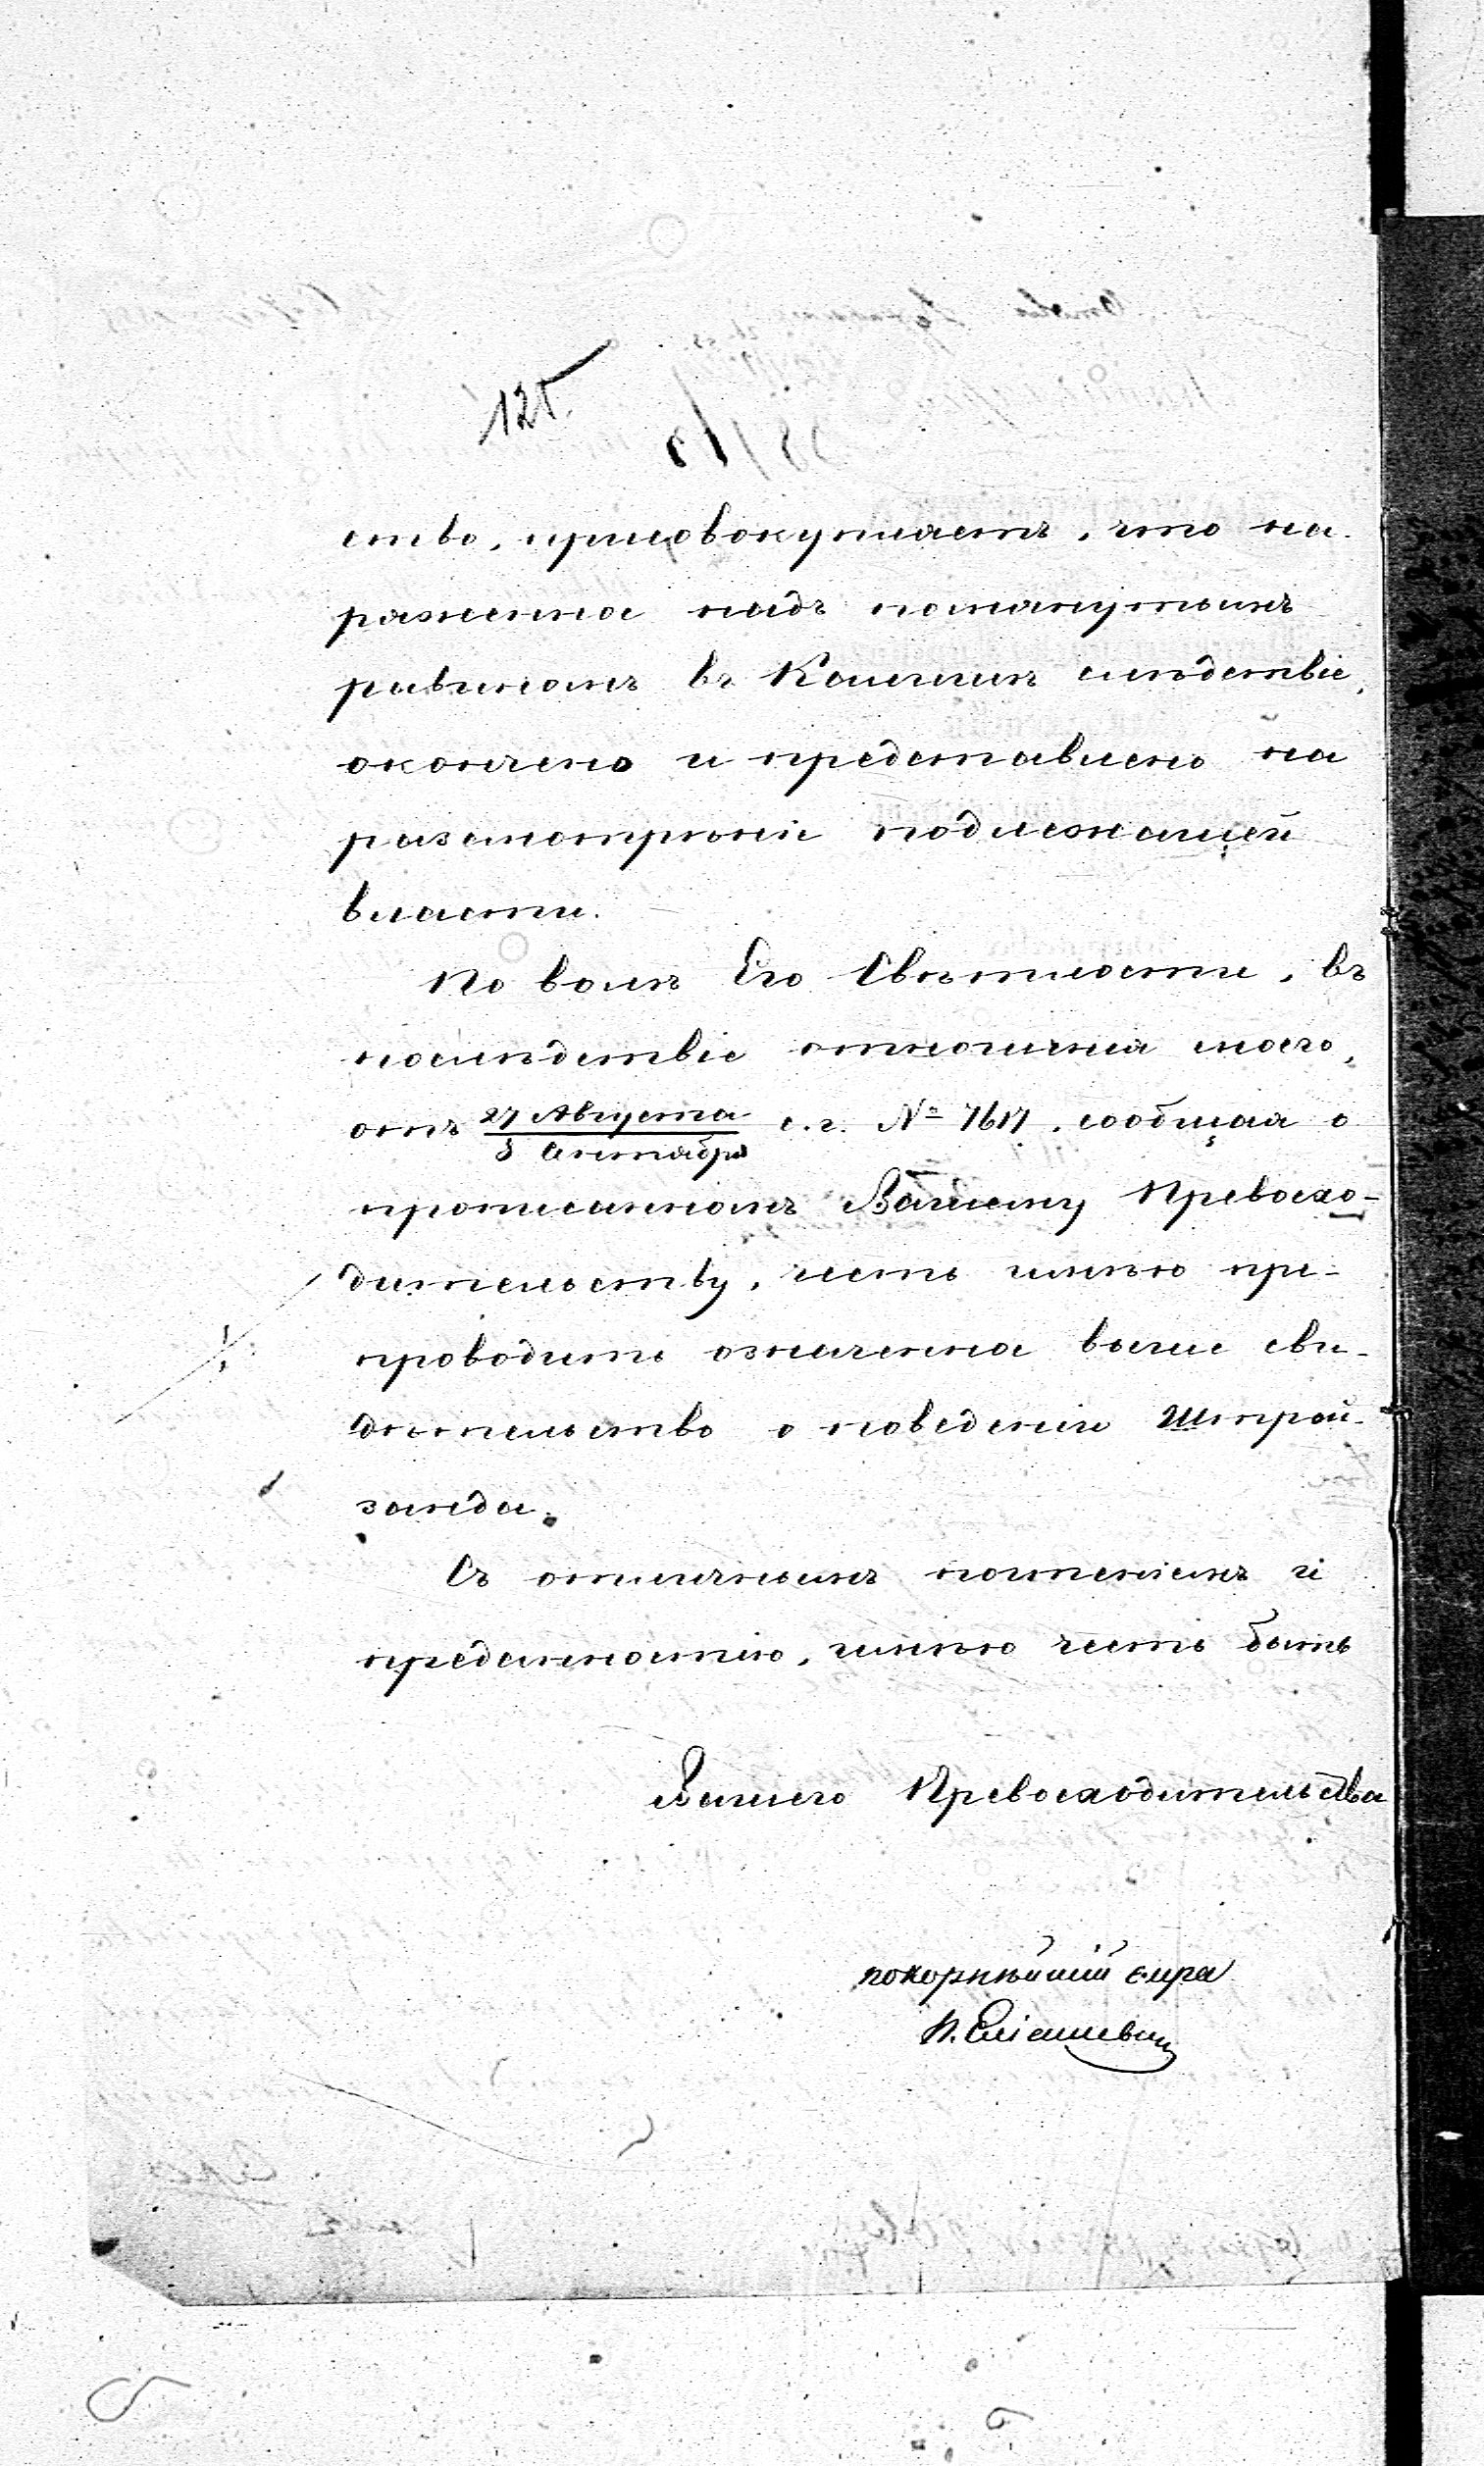 125.
ство, присовокупляетъ, что на-
ряженное надъ помянутымъ
равиномъ въ Коммин слѣдствіе,
окончено и представлено на
разсмотрѣніе подлежащей
власти.
По волѣ Его Свѣтлости, въ
послѣдствіе отношенія моего,
отъ 27 Августа
8 Сентября с. г. № 7617, сообщая о
прописанномъ Вашему Превосхо-
дительству, честь имѣю пре-
проводить означенное выше сви-
дѣтельство о поведеніи Штрой-
занда.
Съ отличнымъ почтеніемъ и
преданностію, имѣю честь быть
Вашего Превосходительства
покорнѣйшій слуга